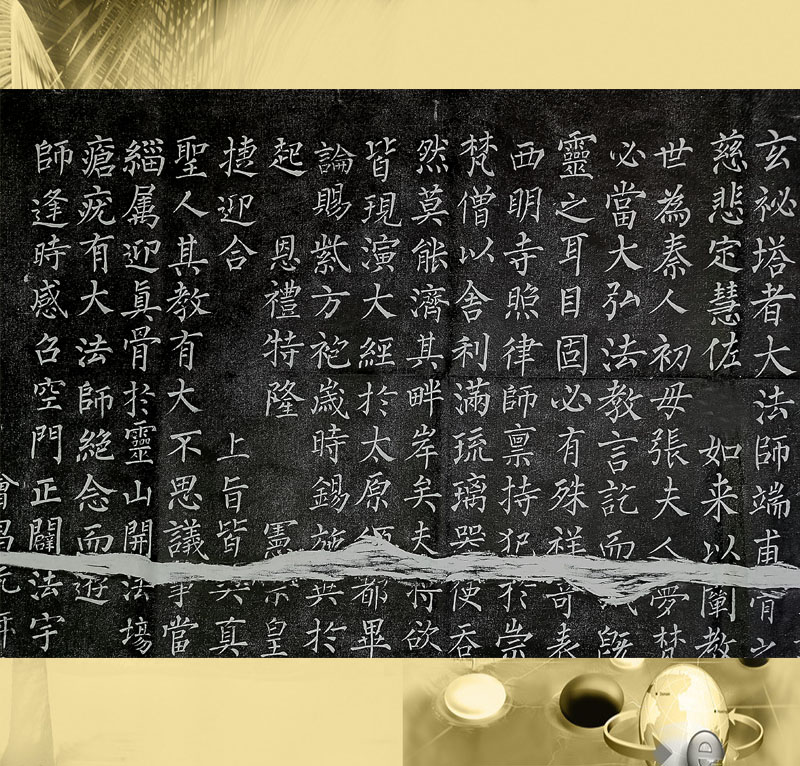 玄祕塔者大法師端甫
慈悲定慧佐 如来以闡教
世為秦人初毋張夫人夢梵
必當大弘法教言訖而滅既
靈之耳目固必有殊祥奇表
西明寺照律師禀持犯於崇
梵僧以舍利滿琉璃器使吞
然莫能濟其畔岸矣夫將欲
皆現演大經於太原傾都畢
論賜紫方袍歲時錫施異於
起 恩禮特隆 憲宗皇
捷迎合 上旨皆以真
聖人其教有大不思議事當
緇属迎真骨於靈山開法場
瘡疣有大法師絶念而遊
師逢時感召空門正闢法宇
會昌元年
e